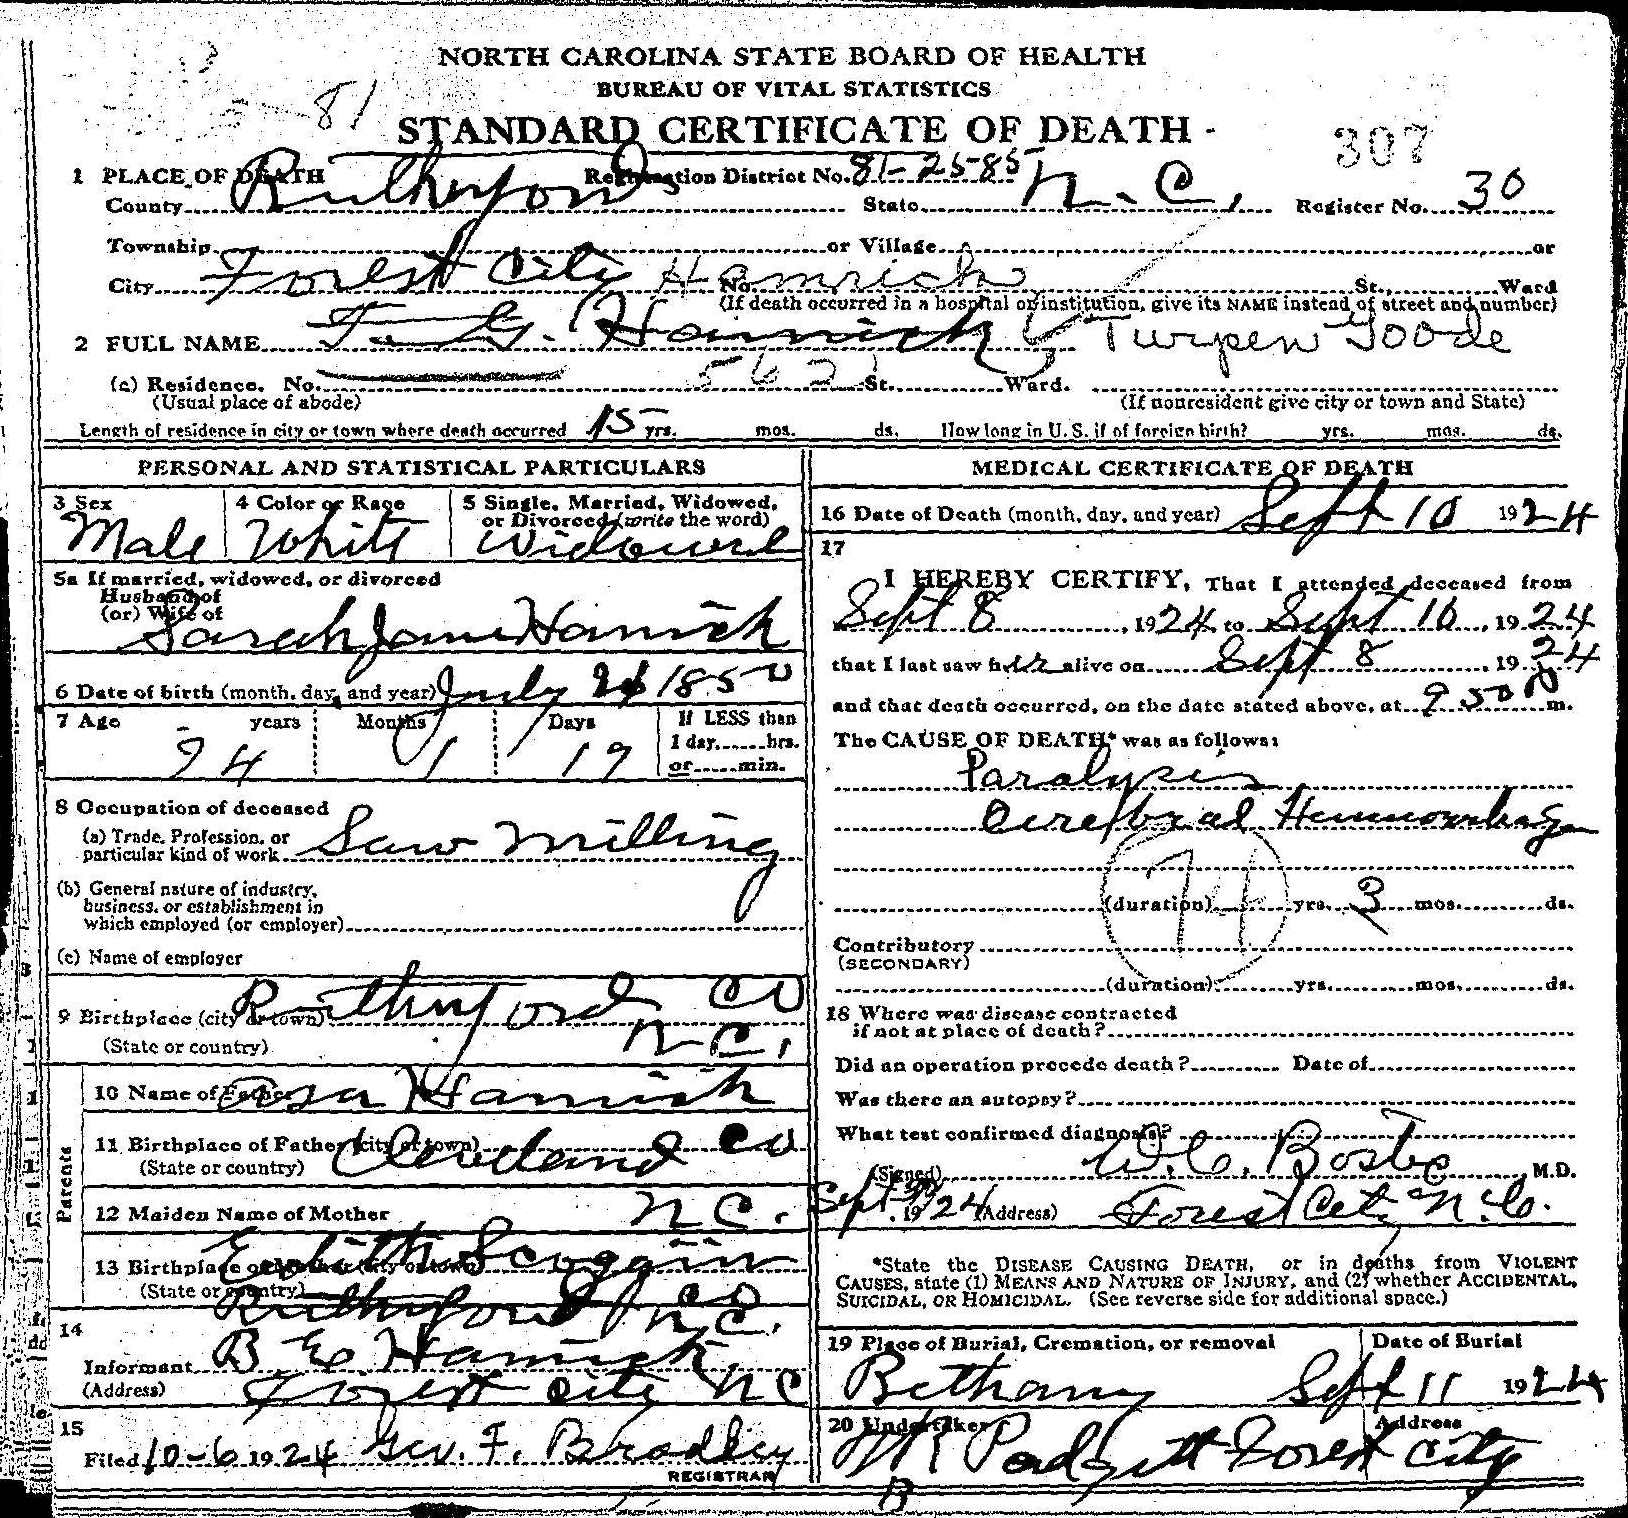 81
NORTH CAROLINA STATE BOARD OF HEALTH
BUREAU OF VITAL STATISTICS
STANDARD CERTIFICATE OF DEATH
307
1 PLACE OF DEATH Registration District No. 81-25-85
County Rutherford State N.C. Register No. 30
Township or Village or
City Forest City Hamrick No. St., Ward
(If death occurred in a hospital or institution, give its NAME instead of street and number)
2 FULL NAME T. G. Hamrick Turpen Goode
(a) Residence. No. 562 St. Ward.
(Usual place of abode) (If nonresident give city or town and State)
Length of residence in city or town where death occurred 15 yrs. mos. ds. How long in U. S. if of foreign birth? yrs. mos. ds.
PERSONAL AND STATISTICAL PARTICULARS
3 Sex 4 Color or Race 5 Single, Married, Widowed,
or Divorced (write the word)
Male White Widowed
5a If married, widowed, or divorced
Husband of
(or) Wife of
Sarah Jane Hamrick
6 Date of birth (month, day, and year) July 21 1850
7 Age years Months Days If LESS than
1 day, hrs.
74 1 19 or min.
8 Occupation of deceased
(a) Trade, Profession, or
particular kind of work Saw Milling
(b) General nature of industry,
business, or establishment in
which employed (or employer)
(c) Name of employer
9 Birthplace (city or town) Rutherford Co
(State or country) N C.
Parents
10 Name of Father Asa Hamrick
11 Birthplace of Father (city or town) Cleveland Co
(State or country)
12 Maiden Name of Mother N C.
Edith Scoggin
13 Birthplace of Mother (city or town)
(State or country) Rutherford Co
N C.
14
Informant B E Hamrick
(Address) Forest City N C
15
Filed 10-6 1924 Geo. F. Bradley
REGISTRAR
MEDICAL CERTIFICATE OF DEATH
16 Date of Death (month, day, and year) Sept 10 1924
17
I HEREBY CERTIFY, That I attended deceased from
Sept 8, 1924, to Sept 10, 1924
that I last saw h alive on Sept 8, 1924
and that death occurred, on the date stated above, at 9 50 m.
The CAUSE OF DEATH* was as follows:
Paralysis
Cerebral Hemmorrhage
74
(duration) yrs. 3 mos. ds.
Contributory
(SECONDARY)
(duration) yrs. mos. ds.
18 Where was disease contracted
if not at place of death?
Did an operation precede death? Date of
Was there an autopsy?
What test confirmed diagnosis?
(Signed) W. C. Bostic, M.D.
Sept. 1924 (Address) Forest City N. C.
*State the DISEASE CAUSING DEATH, or in deaths from VIOLENT
CAUSES, state (1) MEANS AND NATURE OF INJURY, and (2) whether ACCIDENTAL,
SUICIDAL, OR HOMICIDAL. (See reverse side for additional space.)
19 Place of Burial, Cremation, or removal Date of Burial
Bethany Sept 11 1924
20 Undertaker Address
Padgett Forest City